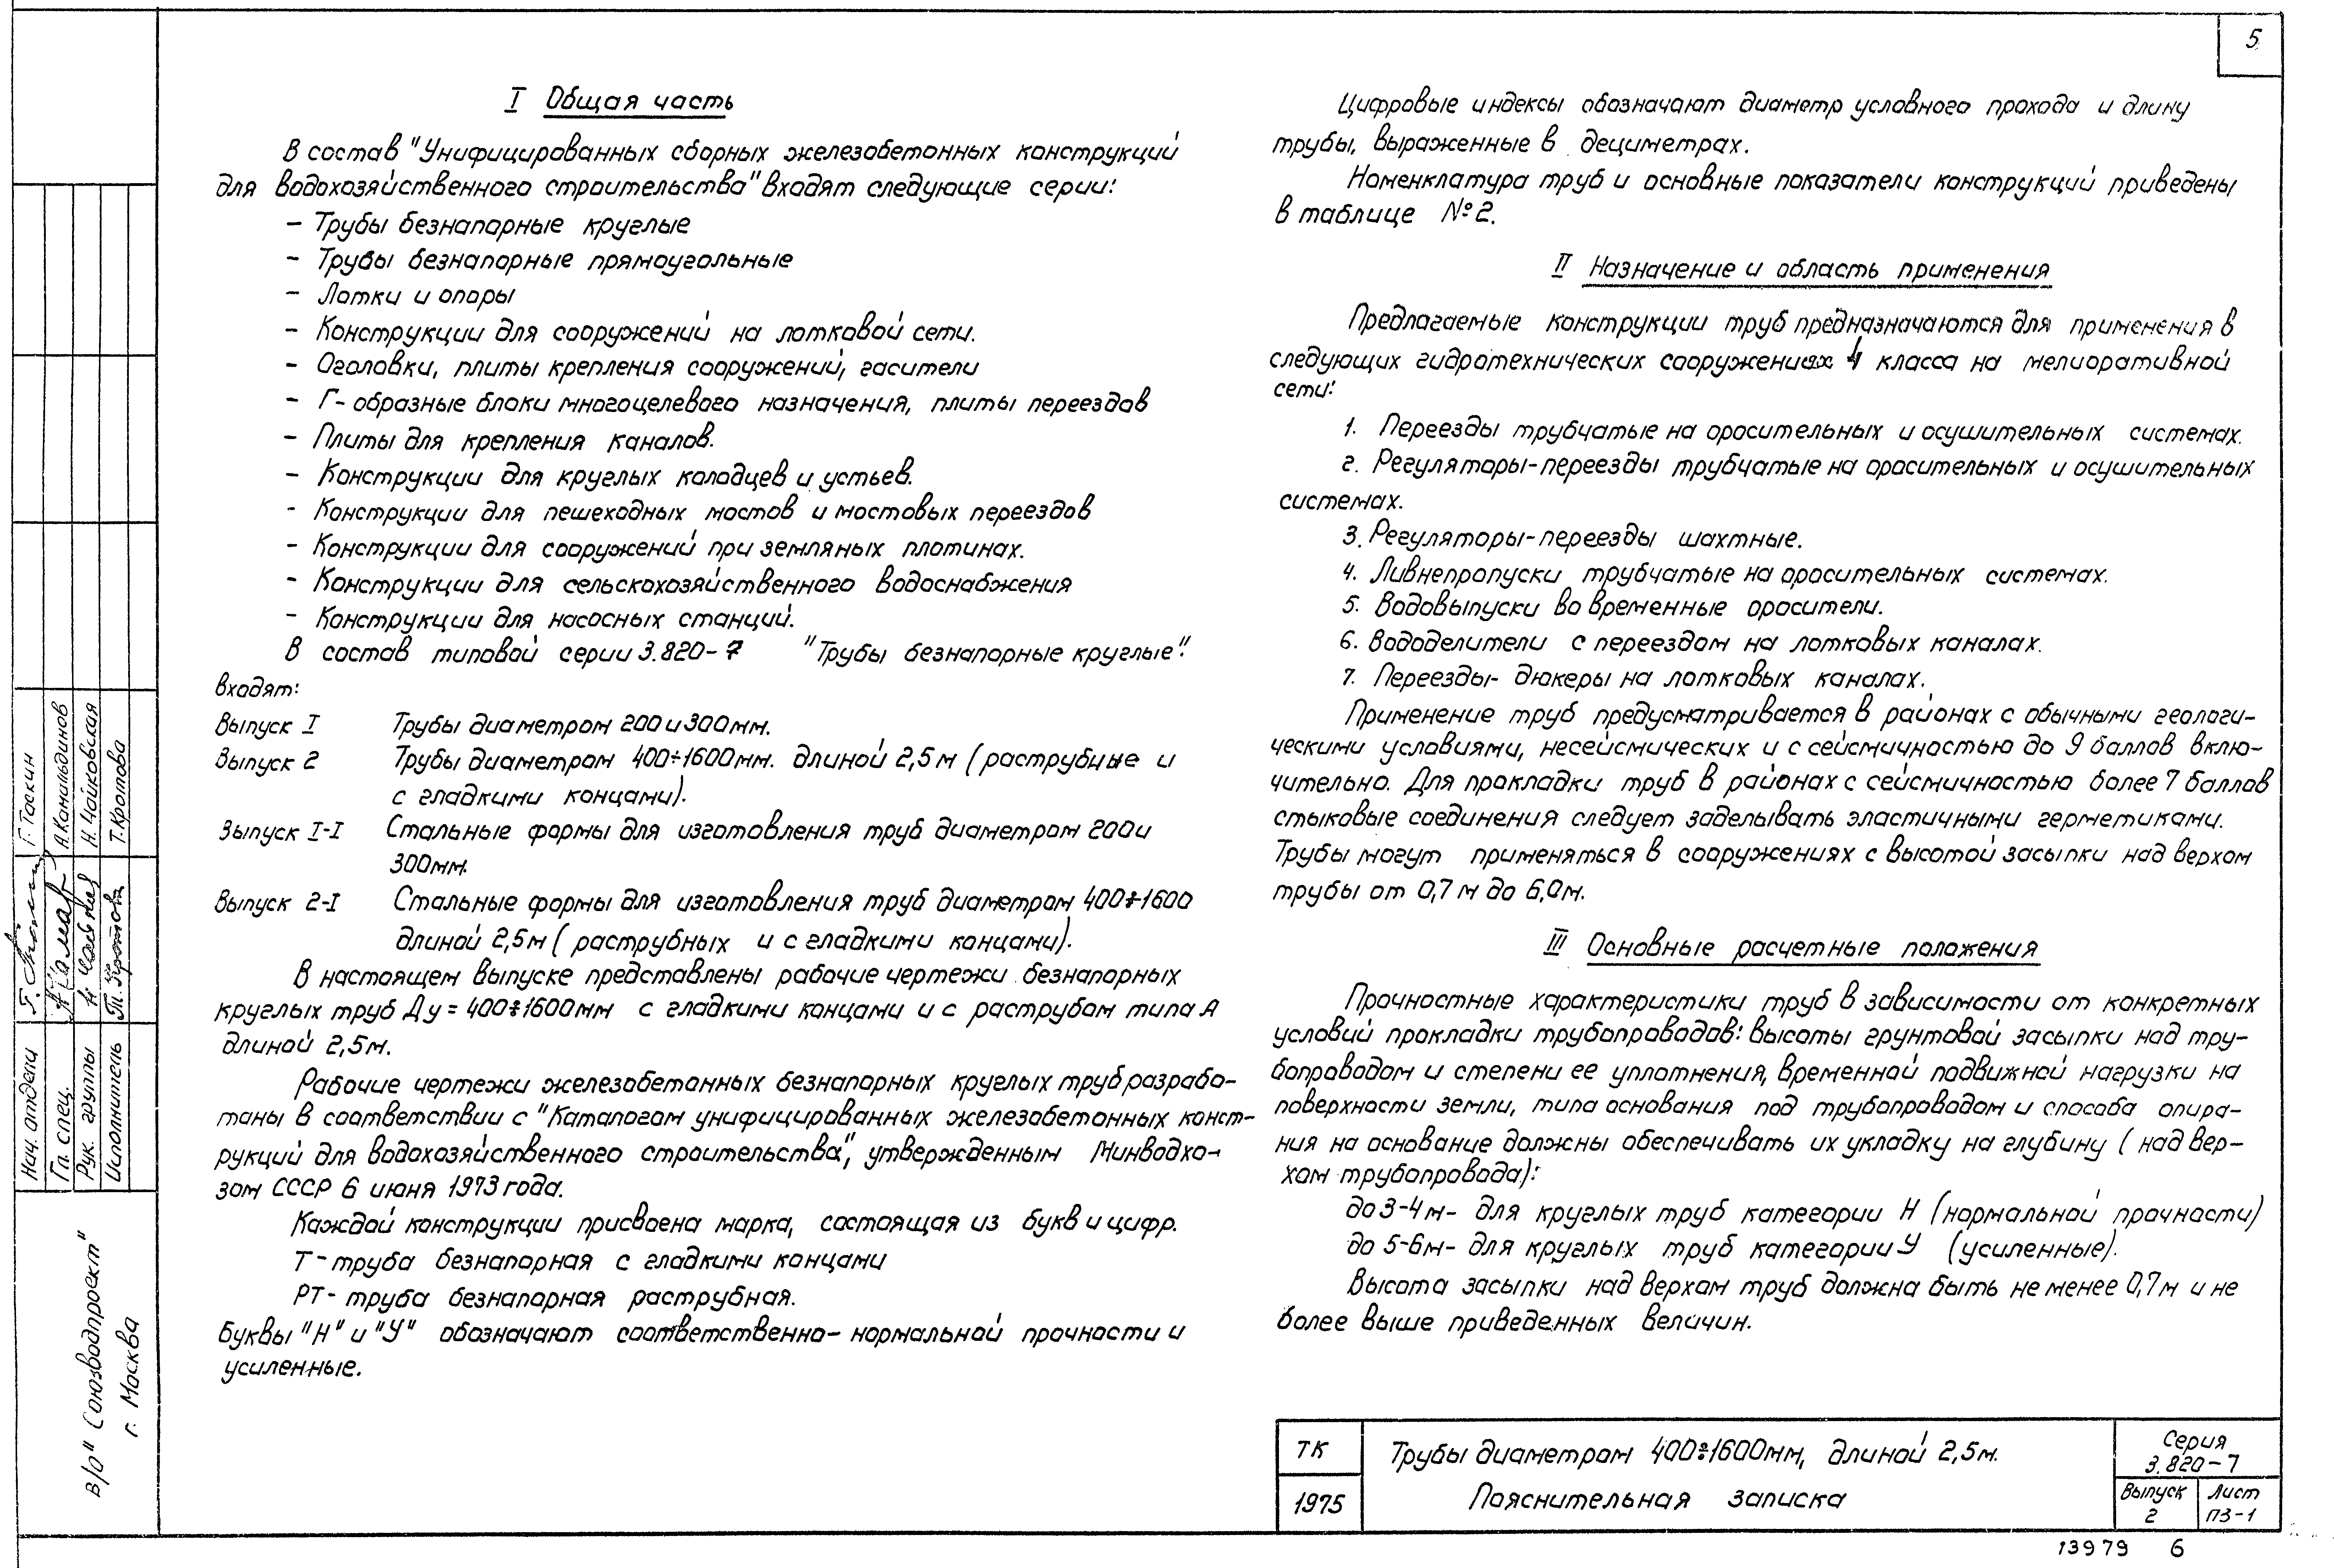 5
I Общая часть
В состав "Унифицированных сборных железобетонных конструкций
для водохозяйственного строительства" входят следующие серии:
– Трубы безнапорные круглые
– Трубы безнапорные прямоугольные
– Лотки и опоры
– Конструкции для сооружений на лотковой сети.
– Оголовки, плиты крепления сооружений, гасители
– Г-образные блоки многоцелевого назначения, плиты переездов
– Плиты для крепления каналов.
– Конструкции для круглых колодцев и устьев.
- Конструкции для пешеходных мостов и мостовых переездов
– Конструкции для сооружений при земляных плотинах.
– Конструкции для сельскохозяйственного водоснабжения
– Конструкции для насосных станций.
В состав типовой серии 3.820-7 "Трубы безнапорные круглые".
входят:
Выпуск I Трубы диаметром 200 и 300мм.
Выпуск 2 Трубы диаметром 400÷1600мм. длиной 2,5м (раструбные и
с гладкими концами).
Выпуск I-I Стальные формы для изготовления труб диаметром 200 и
300мм.
Выпуск 2-I Стальные формы для изготовления труб диаметром 400÷1600
длиной 2,5м (раструбных и с гладкими концами).
В настоящем выпуске представлены рабочие чертежи безнапорных
круглых труб Ду=400÷1600мм с гладкими концами и с раструбом типа А
длиной 2,5м.
Рабочие чертежи железобетонных безнапорных круглых труб разрабо-
таны в соответствии с "Каталогом унифицированных железобетонных конст-
рукций для водохозяйственного строительства", утвержденным Минводхо-
зом СССР 6 июня 1973 года.
Каждой конструкции присвоена марка, состоящая из букв и цифр.
Т-труба безнапорная с гладкими концами
РТ-труба безнапорная раструбная.
Буквы "Н" и "У" обозначают соответственно- нормальной прочности и
усиленные.
Цифровые индексы обозначают диаметр условного прохода и длину
трубы, выраженные в дециметрах.
Номенклатура труб и основные показатели конструкций приведены
в таблице №2.
II Назначение и область применения
Предлагаемые конструкции труб предназначаются для применения в
следующих гидротехнических сооружениях 4 класса на мелиоративной
сети:
1. Переезды трубчатые на оросительных и осушительных системах.
2. Регуляторы-переезды трубчатые на оросительных и осушительных
системах.
3. Регуляторы-переезды шахтные.
4. Ливнепропуски трубчатые на оросительных системах.
5. Водовыпуски во временные оросители.
6. Вододелители с переездом на лотковых каналах.
7. Переезды- дюкеры на лотковых каналах.
Применение труб предусматривается в районах с обычными геологи-
ческими условиями, несейсмических и с сейсмичностью до 9 баллов вклю-
чительно. Для прокладки труб в районах с сейсмичностью более 7 баллов
стыковые соединения следует заделывать эластичными герметиками.
Трубы могут применяться в сооружениях с высотой засыпки над верхом
трубы от 0,7м до 6,0м.
III Основные расчетные положения
Прочностные характеристики труб в зависимости от конкретных
условий прокладки трубопроводов: высоты грунтовой засыпки над тру-
бопроводом и степени ее уплотнения, временной подвижной нагрузки на
поверхности земли, типа основания под трубопроводом и способа опира-
ния на основание должны обеспечивать их укладку на глубину (над вер-
хом трубопровода):
до 3-4м- для круглых труб категории Н (нормальной прочности)
до 5-6м- для круглых труб категории У (усиленные).
Высота засыпки над верхом труб должна быть не менее 0,7м и не
более выше приведенных величин.
Нач. отдела Г. Таскин
Гл. спец. А. Камильдинов
Рук. группы Н. Чайковская
Исполнитель Т. Кротова
В/О "Союзводпроект"
г. Москва
ТК
1975
Трубы диаметром 400÷1600мм, длиной 2,5м.
Пояснительная записка
Серия
3.820-7
Выпуск
2
Лист
ПЗ-1
13979 6